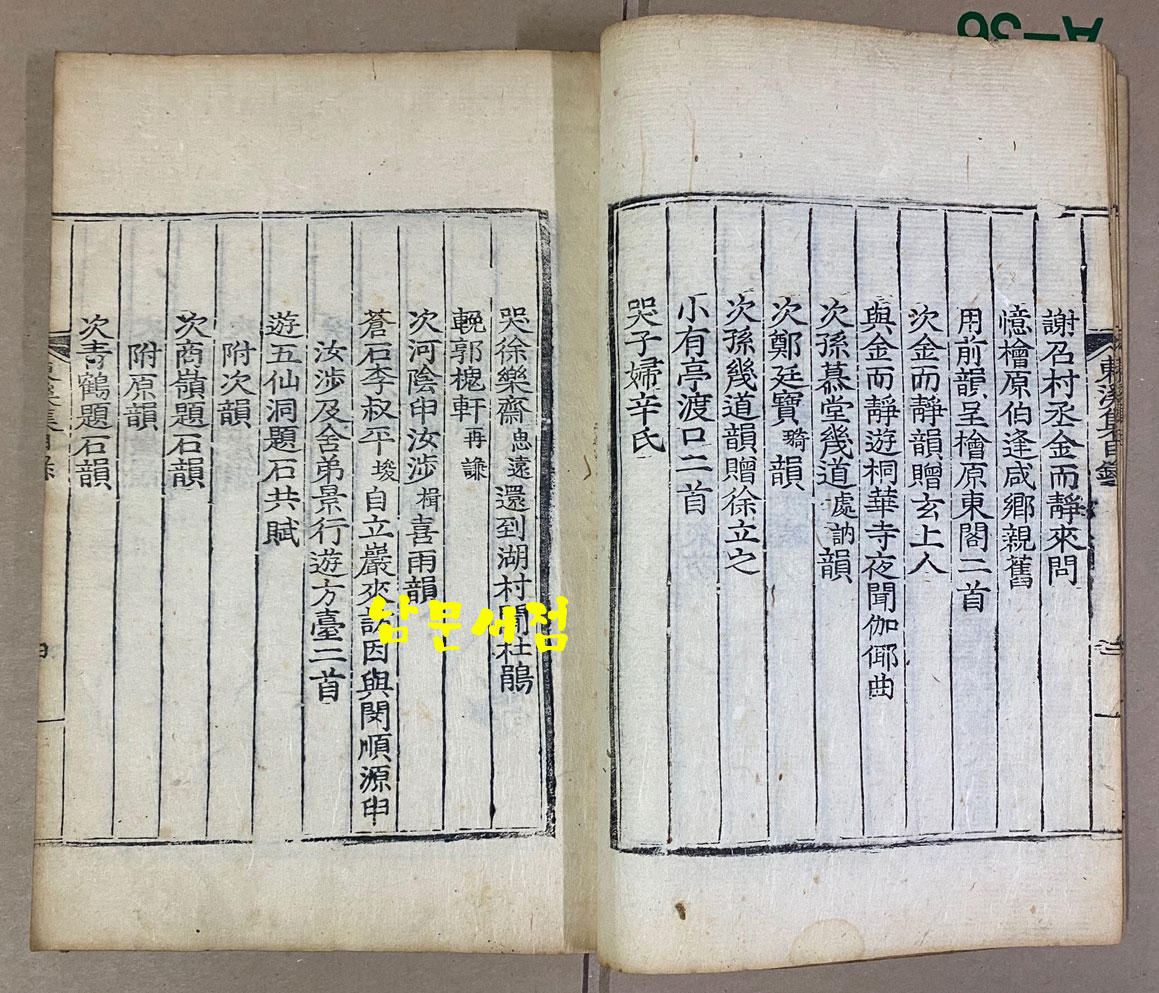 A-36
東溪集目錄
謝召村丞金而靜來問
憶檜原伯逢咸鄉親舊
用前韻呈檜原東閣二首
次金而靜韻贈玄上人
與金而靜遊桐華寺夜聞伽倻曲
次孫慕堂幾道處訥韻
次鄭廷寶𤨒韻
次孫幾道韻贈徐立之
小有亭渡口二首
哭子婦辛氏
三
哭徐樂齋思遠還到湖村聞杜鵑
輓郭槐軒再謙
次河陰申汝涉楫喜雨韻
蒼石李叔平埈自立巖來訪因與閔順源申
汝涉及舍弟景行遊方臺二首
遊五仙洞題石共賦
附次韻
次商嶺題石韻
附原韻
次靑鶴題石韻
集目錄
四
남문서점